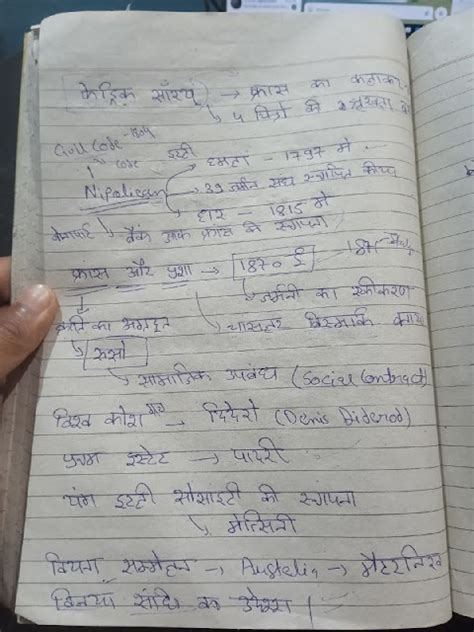 फ्रेड्रिक सॉरयू → फ्रांस का कलाकार
↳ 4 चित्रों की श्रृंखला
Civil Code - 1804
code इटली
हमला - 1797 में
Nipolican → 39 जर्मन संघ स्थापित किया
हार - 1815 में
बोनापार्ट ↳ बैंक ऑफ फ्रांस की स्थापना
फ्रांस और प्रशा → 1870 ई
↳ जर्मनी का एकीकरण
क्रांति का अग्रदूत ↳ चांसलर बिस्मार्क
↳ रूसो
↳ सामाजिक उपबंध (Social Contract)
विश्व कोश → दिदेरो (Denis Diderod)
प्रथम इस्टेट → पादरी
यंग इटली सोसाइटी की स्थापना
↳ मेत्सिनी
वियना सम्मेलन → Austelia → मैटरनिख
वियना संधि का उद्देश्य |